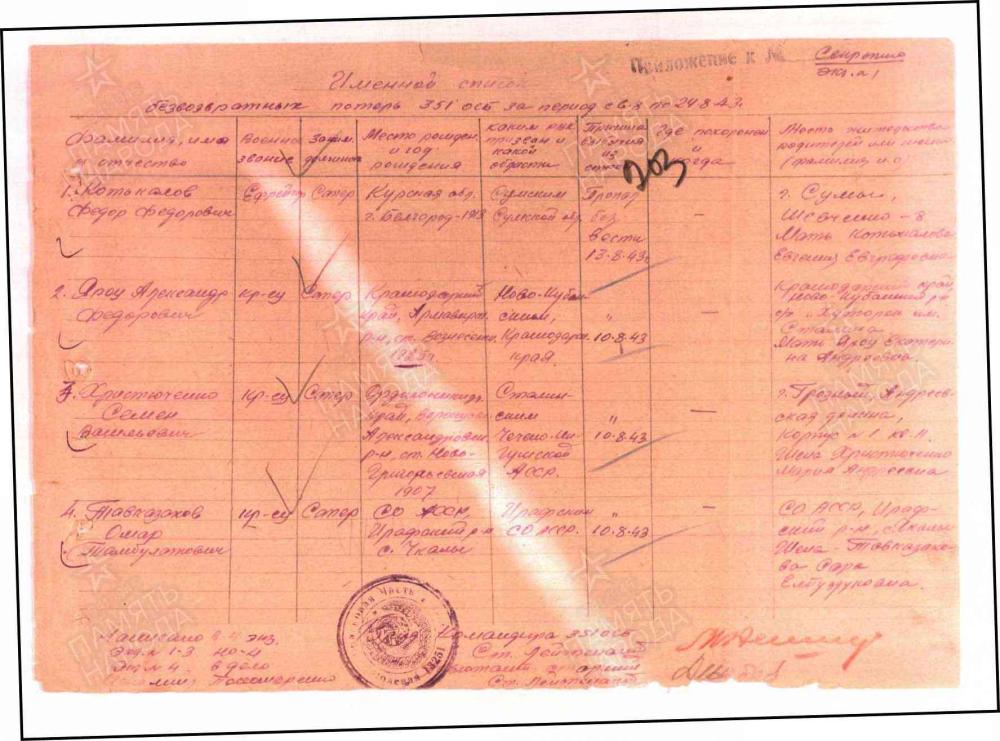 Приложение к №
Секретно
Экз. №1
Именной список
безвозвратных потерь 351 осб за период с 8.8 по 24.8.43.
Фамилия, имя и отчество
Военное звание
Заним. должность
Место рожден. и год рождения
каким РВК призван и какой области
Причина выбытия из
Где похоронен и когда
Место жительства родителей или жены (фамилия и.о.
203
1. Котькалов Федор Федорович
Ефрейтор
Сапер
Курская обл. г. Белгород-1918
Сумским Сумской обл.
Пропал без вести 13.8.43г
—
г. Сумы, Шевченко-8 Мать Котькалова Евгения Евграфовна
2. Яроу Александр Федорович
кр-ец
Сапер
Краснодарский край, Армавирск. р-н, ст. Вознесенск. 1923г.
Ново-Кубанским, Краснодарск. края
" 10.8.43
—
Краснодарский край, Ново-Кубанский р-н Хуторок им. Сталина Мать Яроу Екатерина Андреевна.
3. Христюченко Семен Васильевич
кр-ец
Сапер
Орджоникидз. край, Александровск. р-н, ст. Ново-Григорьевская 1907
Сталинским Чечено-Ингушской АССР.
" 10.8.43
—
г. Грозный, Андреевская долина, Корпус №1 кв. 11. Жена Христюченко Мария Андреевна
4. Тавказахов Омар Тамбулатович
кр-ец
Сапер
СО АССР, Ирафский р-н с. Чкалы
Ирафским СО АССР.
10.8.43
—
СО АССР, Ирафский р-н, Чкалы Жена - Тавказахова Сара Елтузуковна.
Написано в 4 экз.
Экз. №1-3
Экз. №4. в дело
Командира 351 осб
Ст. Лейтенант
Ст. Лейтенант
Полевая часть
13251
ПАМЯТЬ НАРОДА